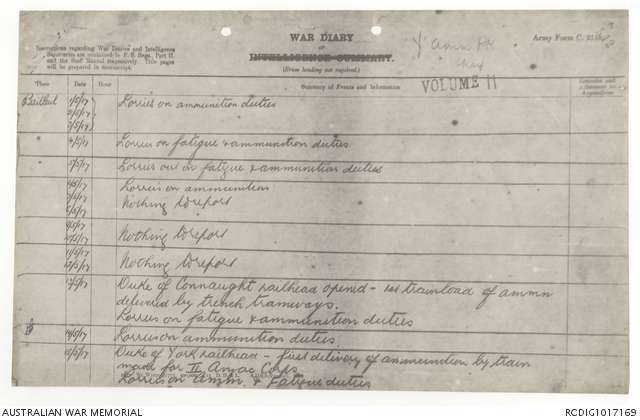 Instructions regarding War Diaries and Intelligence
Summaries are contained in F. S. Regs. Part II.
and the Staff Manual respectively. Title pages
will be prepared in manuscript.
WAR DIARY
or
INTELLIGENCE SUMMARY.
(Erase heading not required.)
Army Form C. 2118.
VOLUME 11
Place Date Hour Summary of Events and Information
Bailleul 1/5/17 Lorries on ammunition duties
2/5/17
3/5/17
4/5/17 Lorries on fatigue & ammunition duties
5/5/17 Lorries out on fatigue & ammunition duties
6/5/17 Lorries on ammunition
7/5/17 Nothing to report
8/5/17
9/5/17
10/5/17 Nothing to report
11/5/17
12/5/17 Nothing to report
13/5/17 Duke of Connaught railhead opened - 1st trainload of ammn
delivered by trench tramways.
Lorries on fatigue & ammunition duties
14/5/17 Lorries on ammunition duties.
15/5/17 Duke of York railhead - first delivery of ammunition by train
made for II Anzac Corps
Lorries on Ammn. & Fatigue duties
AUSTRALIAN WAR MEMORIAL
RCDIG1017169